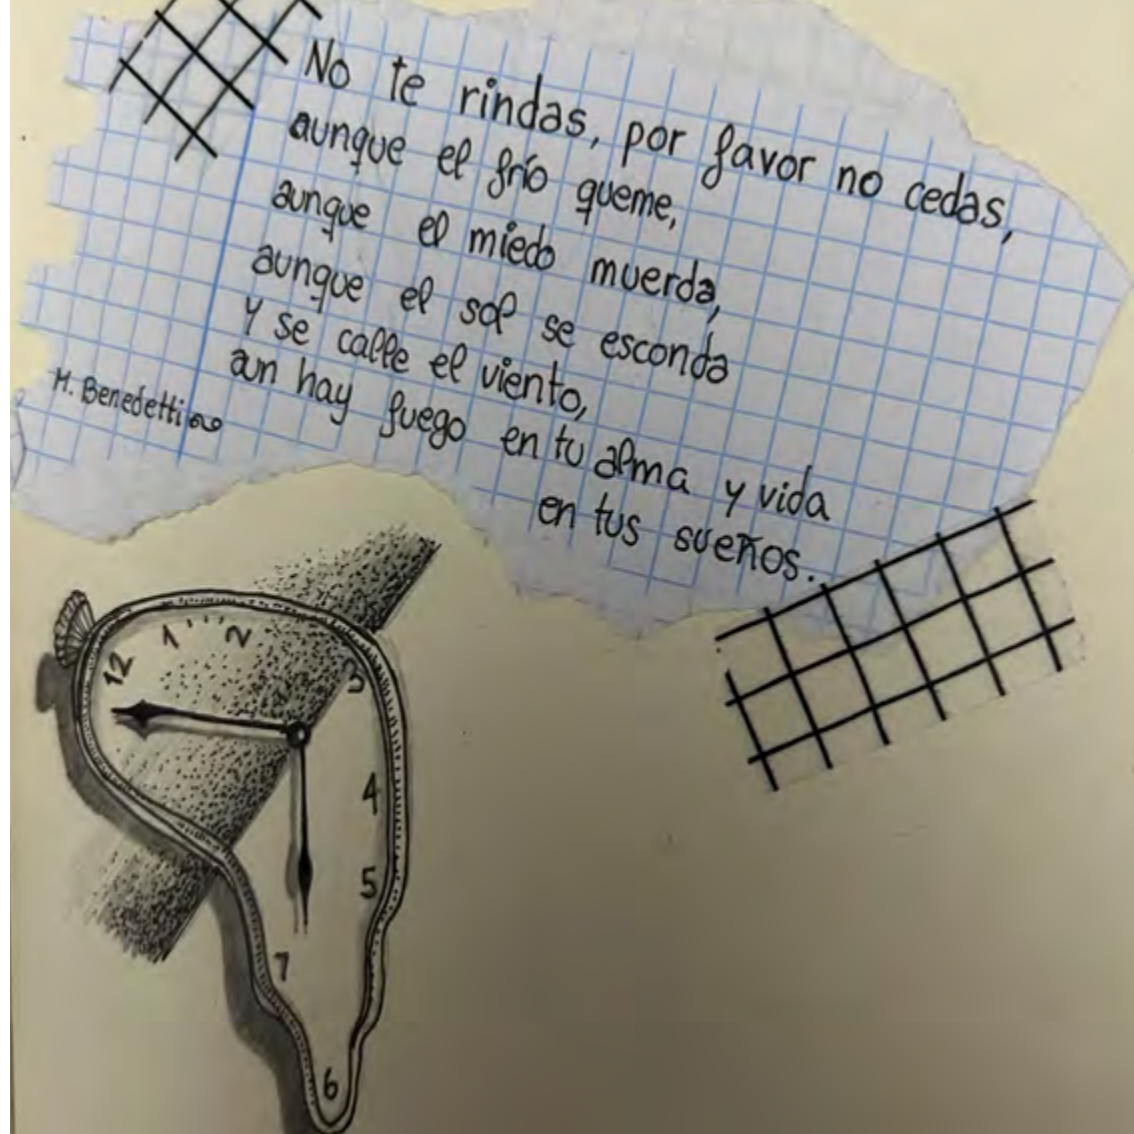 No te rindas, por favor no cedas,
aunque el frío queme,
aunque el miedo muerda,
aunque el sol se esconda
y se calle el viento,
aun hay fuego en tu alma y vida
en tus sueños..
M. Benedetti
1 2
12 3
4
5
7
6